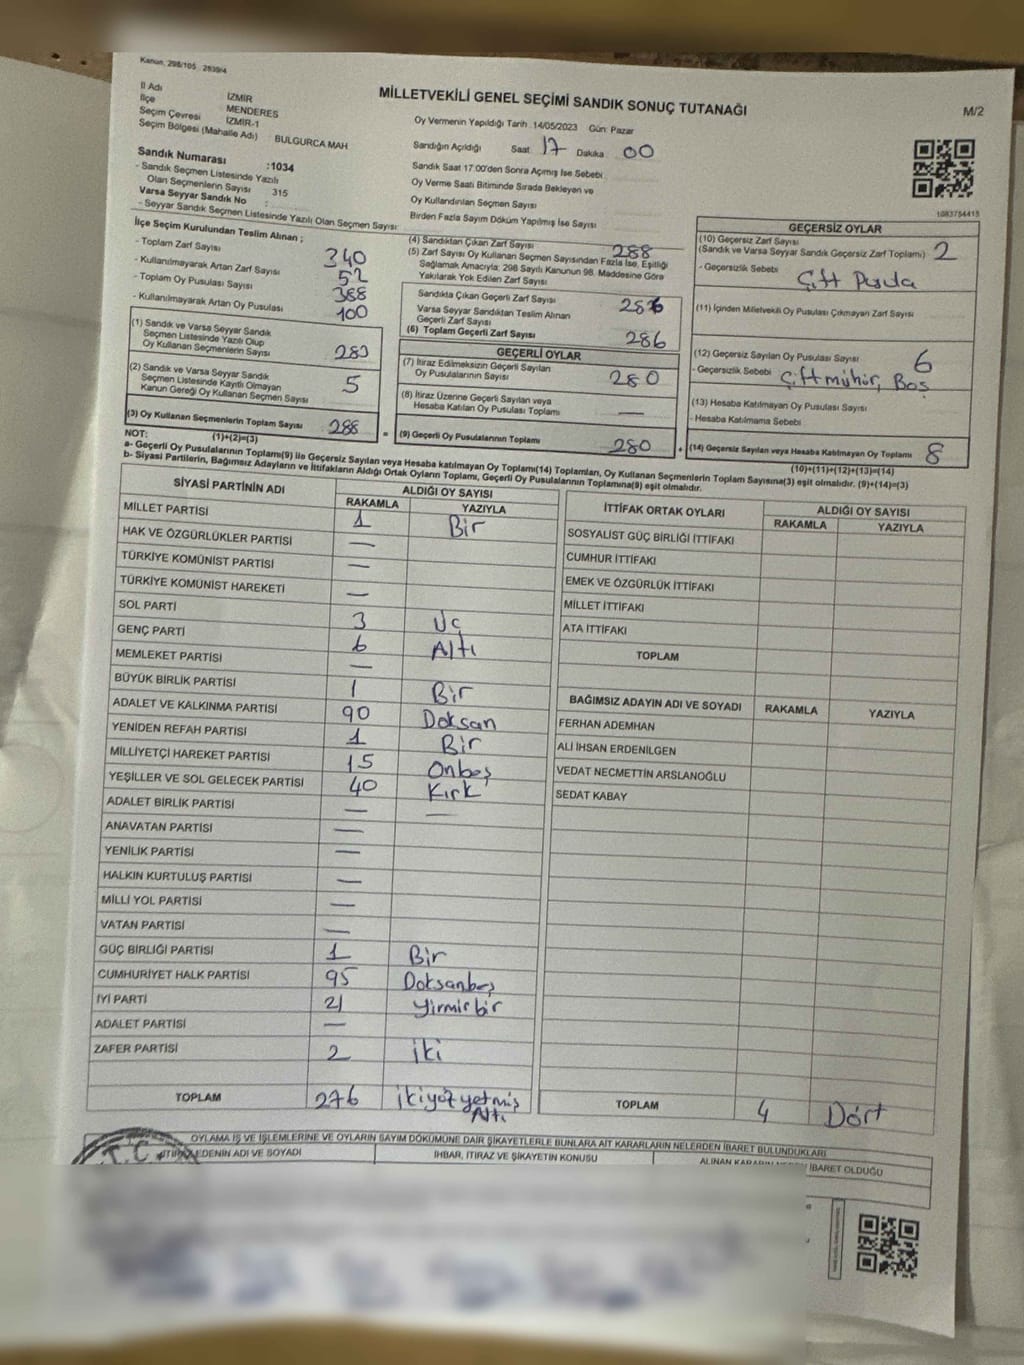 Kanun, 298/105 2839/4
MİLLETVEKİLİ GENEL SEÇİMİ SANDIK SONUÇ TUTANAĞI
M/2
İl Adı İZMİR
İlçe MENDERES
Seçim Çevresi İZMİR-1
Seçim Bölgesi (Mahalle Adı) BULGURCA MAH
Sandık Numarası :1034
- Sandık Seçmen Listesinde Yazılı
Olan Seçmenlerin Sayısı 315
Varsa Seyyar Sandık No :
- Seyyar Sandık Seçmen Listesinde Yazılı Olan Seçmen Sayısı :
Oy Vermenin Yapıldığı Tarih :14/05/2023 Gün: Pazar
Sandığın Açıldığı Saat 17 Dakika 00
Sandık Saat 17:00'den Sonra Açımış İse Sebebi
Oy Verme Saati Bitiminde Sırada Bekleyen ve
Oy Kullandırılan Seçmen Sayısı
Birden Fazla Sayım Döküm Yapılmış İse Sayısı
1083754415
İlçe Seçim Kurulundan Teslim Alınan ;
- Toplam Zarf Sayısı 340
- Kullanılmayarak Artan Zarf Sayısı 52
- Toplam Oy Pusulası Sayısı 388
- Kullanılmayarak Artan Oy Pusulası 100
(1) Sandık ve Varsa Seyyar Sandık
Seçmen Listesinde Yazılı Olup
Oy Kullanan Seçmenlerin Sayısı 283
(2) Sandık ve Varsa Seyyar Sandık
Seçmen Listesinde Kayıtlı Olmayan
Kanun Gereği Oy Kullanan Seçmen Sayısı 5
(3) Oy Kullanan Seçmenlerin Toplam Sayısı 288 =
(4) Sandıktan Çıkan Zarf Sayısı 288
(5) Zarf Sayısı Oy Kullanan Seçmen Sayısından Fazla İse, Eşitliği
Sağlamak Amacıyla; 298 Sayılı Kanunun 98. Maddesine Göre
Yakılarak Yok Edilen Zarf Sayısı
Sandıkta Çıkan Geçerli Zarf Sayısı 286
Varsa Seyyar Sandıktan Teslim Alınan
Geçerli Zarf Sayısı
(6) Toplam Geçerli Zarf Sayısı 286
GEÇERLİ OYLAR
(7) İtiraz Edilmeksizin Geçerli Sayılan
Oy Pusulalarının Sayısı 280
(8) İtiraz Üzerine Geçerli Sayılan veya
Hesaba Katılan Oy Pusulası Toplamı —
(9) Geçerli Oy Pusulalarının Toplamı 280 +
GEÇERSİZ OYLAR
(10) Geçersiz Zarf Sayısı
(Sandık ve Varsa Seyyar Sandık Geçersiz Zarf Toplamı) 2
- Geçersizlik Sebebi Çift Pusula
(11) İçinden Milletvekili Oy Pusulası Çıkmayan Zarf Sayısı
(12) Geçersiz Sayılan Oy Pusulası Sayısı 6
- Geçersizlik Sebebi Çift mühür, Boş
(13) Hesaba Katılmayan Oy Pusulası Sayısı
- Hesaba Katılmama Sebebi
(14) Geçersiz Sayılan veya Hesaba Katılmayan Oy Toplamı 8
NOT: (1)+(2)=(3)
(10)+(11)+(12)+(13)=(14)
a- Geçerli Oy Pusulalarının Toplamı(9) ile Geçersiz Sayılan veya Hesaba katılmayan Oy Toplamı(14) Toplamları, Oy Kullanan Seçmenlerin Toplam Sayısına(3) eşit olmalıdır. (9)+(14)=(3)
b- Siyasi Partilerin, Bağımsız Adayların ve İttifakların Aldığı Ortak Oyların Toplamı, Geçerli Oy Pusulalarının Toplamına(9) eşit olmalıdır.
SİYASİ PARTİNİN ADI ALDIĞI OY SAYISI
RAKAMLA YAZIYLA
MİLLET PARTİSİ 1 Bir
HAK VE ÖZGÜRLÜKLER PARTİSİ —
TÜRKİYE KOMÜNİST PARTİSİ —
TÜRKİYE KOMÜNİST HAREKETİ —
SOL PARTİ 3 Üç
GENÇ PARTİ 6 Altı
MEMLEKET PARTİSİ —
BÜYÜK BİRLİK PARTİSİ 1 Bir
ADALET VE KALKINMA PARTİSİ 90 Doksan
YENİDEN REFAH PARTİSİ 1 Bir
MİLLİYETÇİ HAREKET PARTİSİ 15 Onbeş
YEŞİLLER VE SOL GELECEK PARTİSİ 40 Kırk
ADALET BİRLİK PARTİSİ — —
ANAVATAN PARTİSİ —
YENİLİK PARTİSİ —
HALKIN KURTULUŞ PARTİSİ —
MİLLİ YOL PARTİSİ —
VATAN PARTİSİ —
GÜÇ BİRLİĞİ PARTİSİ 1 Bir
CUMHURİYET HALK PARTİSİ 95 Doksanbeş
İYİ PARTİ 21 Yirmirbir
ADALET PARTİSİ —
ZAFER PARTİSİ 2 İki
TOPLAM 276 ikiyüzyetmiş
Altı
İTTİFAK ORTAK OYLARI ALDIĞI OY SAYISI
RAKAMLA YAZIYLA
SOSYALİST GÜÇ BİRLİĞİ İTTİFAKI
CUMHUR İTTİFAKI
EMEK VE ÖZGÜRLÜK İTTİFAKI
MİLLET İTTİFAKI
ATA İTTİFAKI
TOPLAM
BAĞIMSIZ ADAYIN ADI VE SOYADI RAKAMLA YAZIYLA
FERHAN ADEMHAN
ALİ İHSAN ERDENİLGEN
VEDAT NECMETTİN ARSLANOĞLU
SEDAT KABAY
TOPLAM 4 Dört
OYLAMA İŞ VE İŞLEMLERİNE VE OYLARIN SAYIM DÖKÜMÜNE DAİR ŞİKAYETLERLE BUNLARA AİT KARARLARIN NELERDEN İBARET BULUNDUKLARI
İTİRAZ EDENİN ADI VE SOYADI İHBAR, İTİRAZ VE ŞİKAYETİN KONUSU ALINAN KARARIN NEDEN İBARET OLDUĞU
T.C.